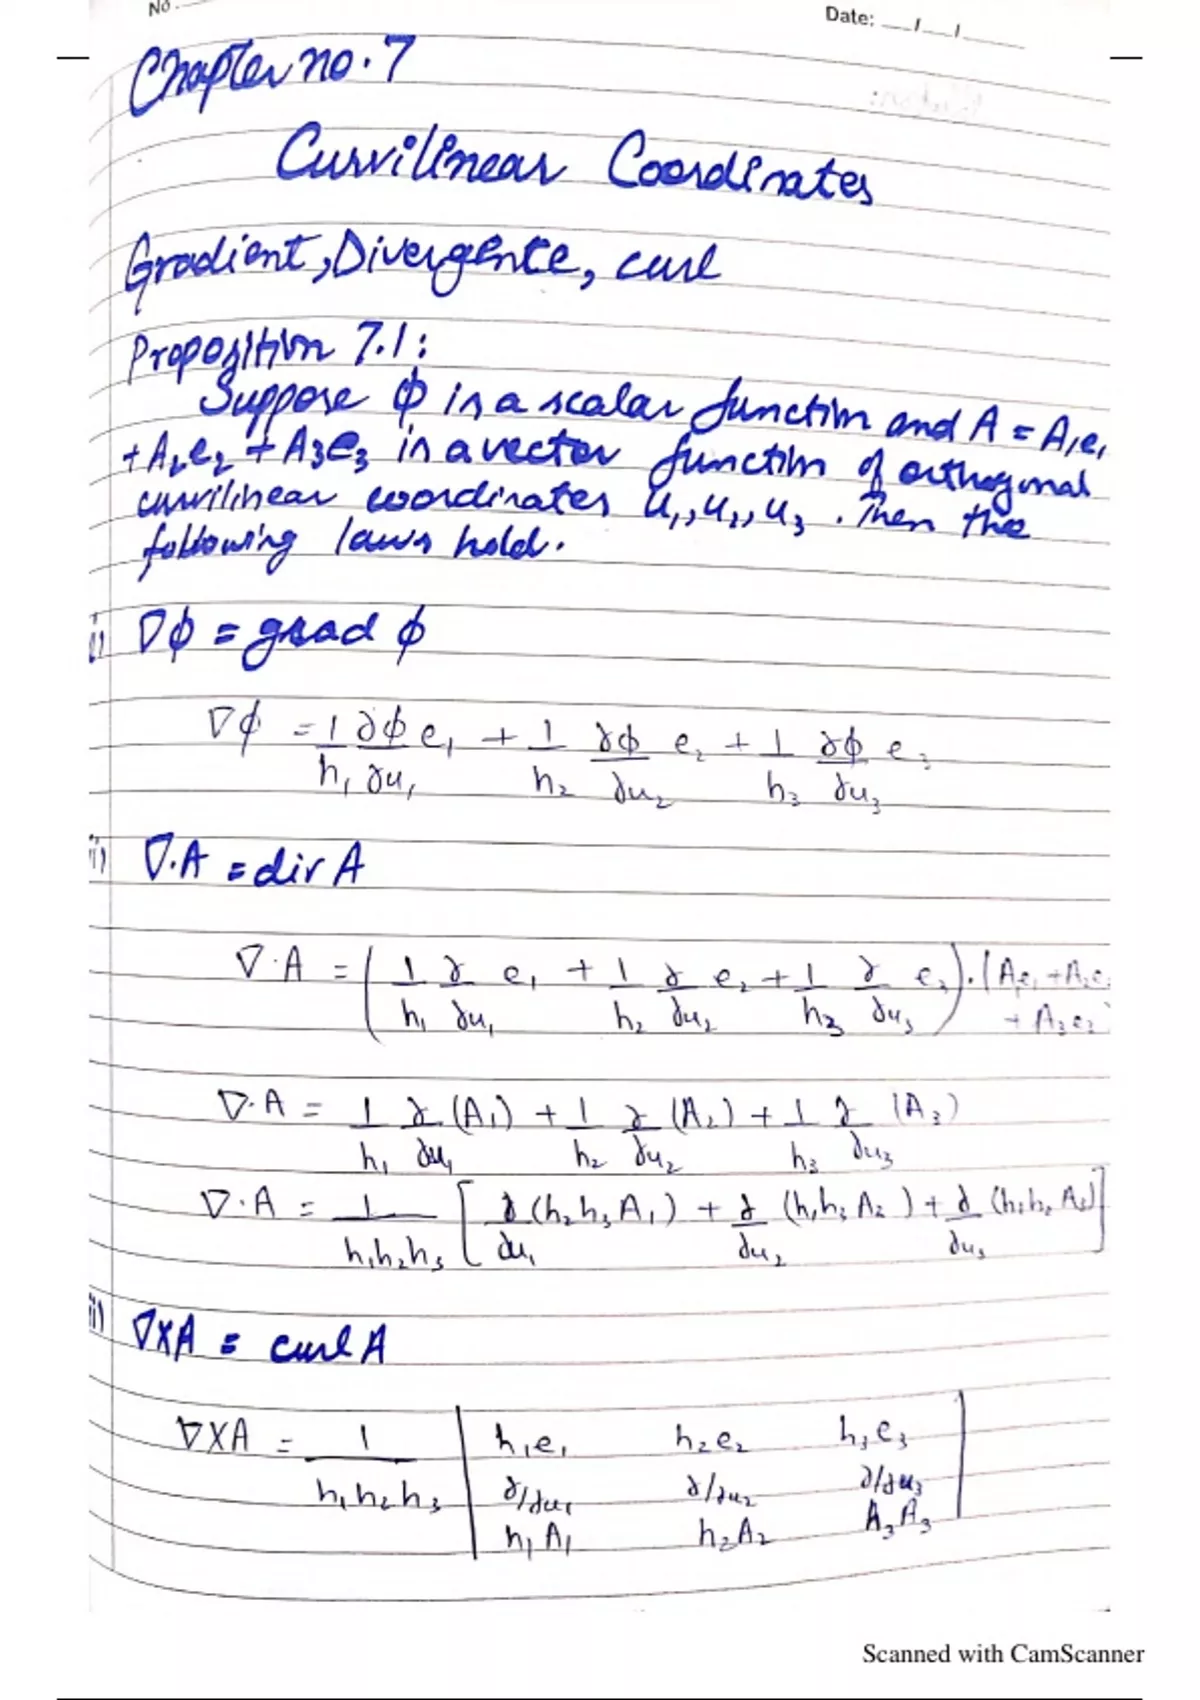 No.
Date: __/__/__
Chapter no. 7
Curvilinear Coordinates
Gradient, Divergence, curl
Proposition 7.1:
Suppose ϕ is a scalar function and A = A₁e₁
+A₂e₂ + A₃e₃ is a vector function of orthogonal
curvilinear coordinates u₁, u₂, u₃. Then the
following laws hold.
i) ∇ϕ = grad ϕ
∇ϕ = 1/h₁ ∂ϕ/∂u₁ e₁ + 1/h₂ ∂ϕ/∂u₂ e₂ + 1/h₃ ∂ϕ/∂u₃ e₃
ii) ∇.A = div A
∇.A = (1/h₁ ∂/∂u₁ e₁ + 1/h₂ ∂/∂u₂ e₂ + 1/h₃ ∂/∂u₃ e₃).(A₁e₁ + A₂e₂
+ A₃e₃)
∇.A = 1/h₁ ∂/∂u₁ (A₁) + 1/h₂ ∂/∂u₂ (A₂) + 1/h₃ ∂/∂u₃ (A₃)
∇.A = 1/h₁h₂h₃ [∂/∂u₁ (h₂h₃A₁) + ∂/∂u₂ (h₁h₃A₂) + ∂/∂u₃ (h₁h₂A₃)]
iii) ∇×A = curl A
∇×A = 1/h₁h₂h₃ | h₁e₁ h₂e₂ h₃e₃
∂/∂u₁ ∂/∂u₂ ∂/∂u₃
h₁A₁ h₂A₂ A₃A₃ |
Scanned with CamScanner